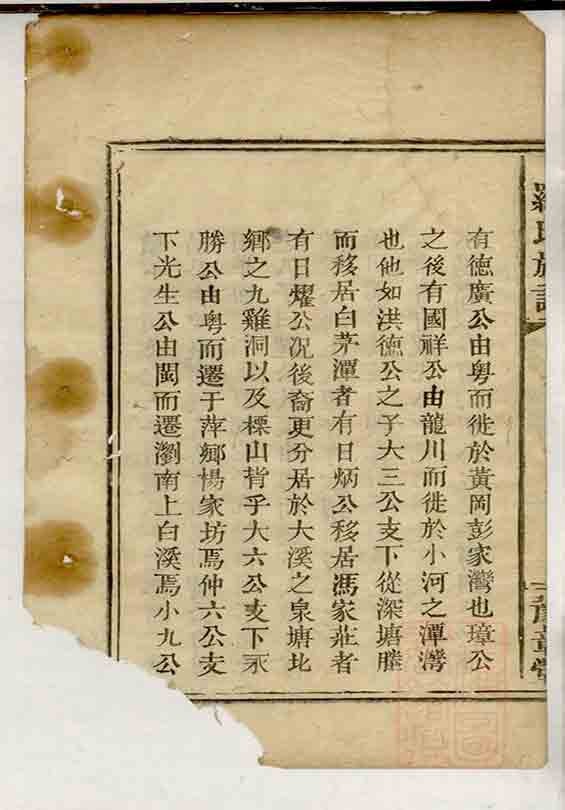 羅氏族譜
豫章堂
有德廣公由粵而徙於黃岡彭家灣也璋公
之後有國祥公由龍川而徙於小河之潭灣
也他如洪德公之子大三公支下從深塘塍
而移居白茅潭者有日炳公移居馮家莊者
有日燿公況後裔更分居於大溪之泉塘北
鄉之九雞洞以及楪山背乎大六公支下永
勝公由粵而遷于萍鄉楊家坊焉仲六公支
下光生公由閩而遷瀏南上白溪焉小九公